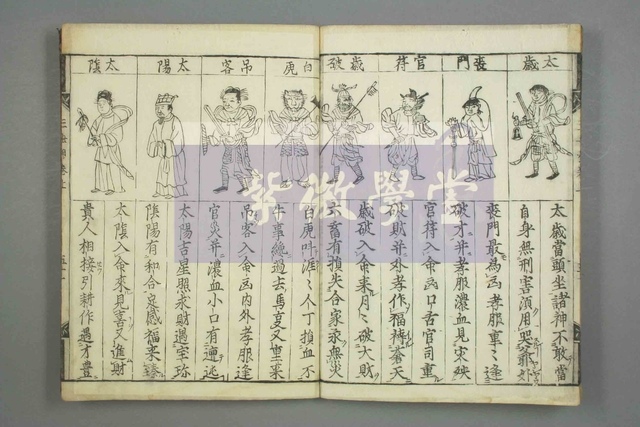 太歲
喪門
官符
歲破
白虎
吊客
太陽
太陰
太歲當頭坐諸神不敢當
自身無刑害須用哭爺
喪門最為凶孝服重〻逢
破才并孝服濃血見灾殃
官符入命凶口舌官司重
破財并外孝作福禱蒼天
歲破入命來月〻破大財
六畜有損失合家永無災
白虎叫涯〻个丁損血不
事總過去馬夏又重來
吊客入命凶内外孝服逢
官災并濃血小口有邅迍
太陽吉星照求財遇宝珎
陰陽有和合定感福来臻
太陰入命來見喜又進財
貴人相接引耕作遇才豊
紫微學堂